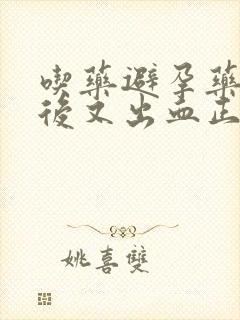 喫藥避孕藥
後又出血正
姚喜雙